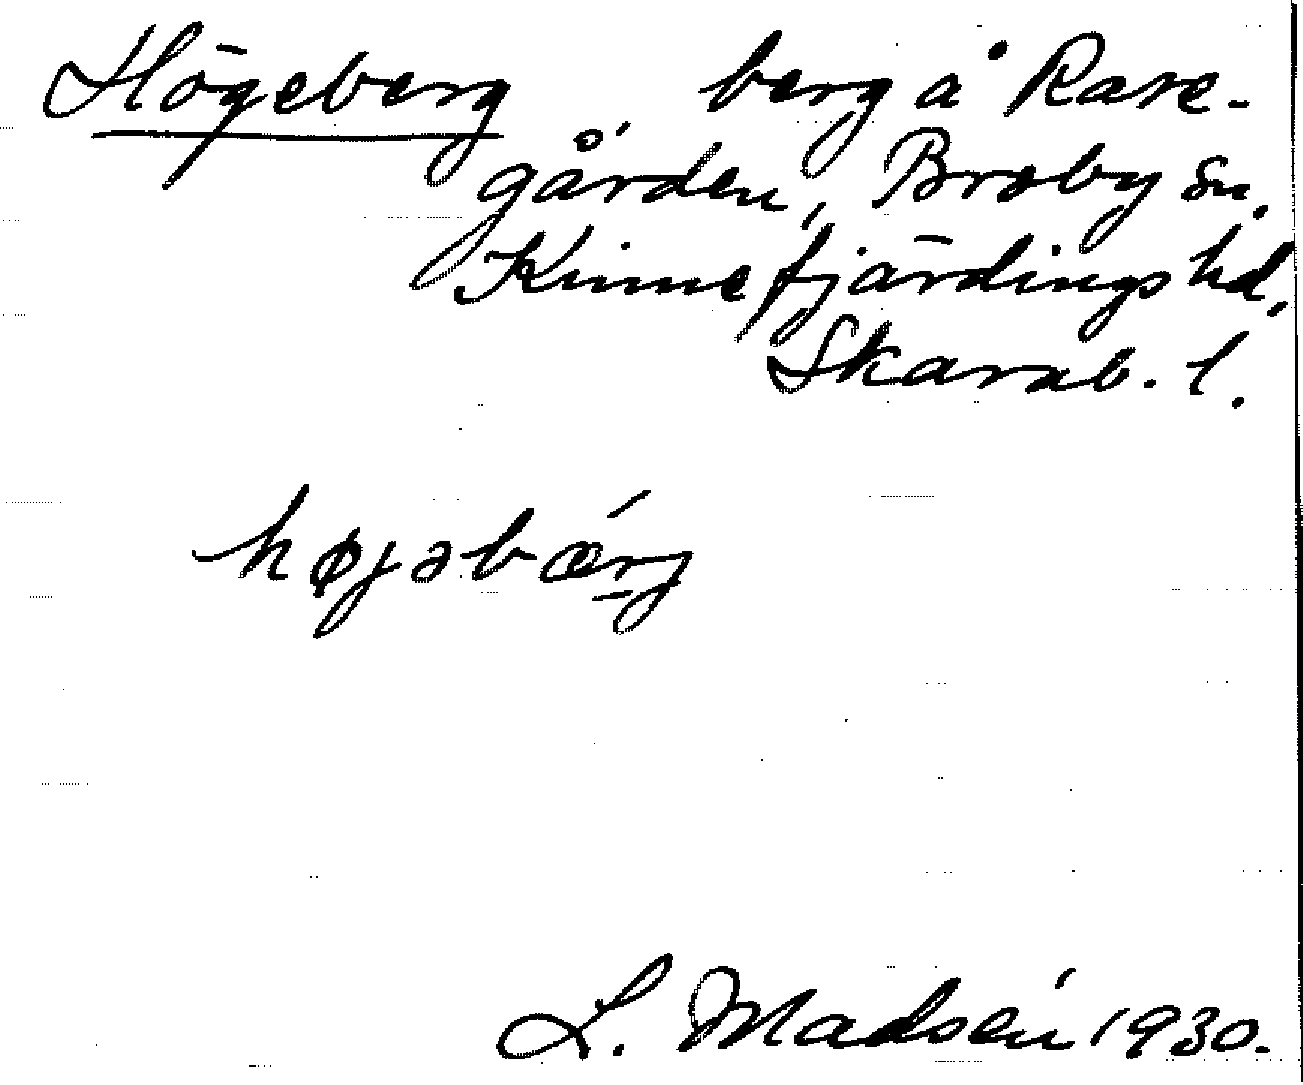 Högeberg berg å Rare-
gården, Broby sn,
Kinnefjärdings hd,
Skarab. l.
højəbærj
L. Madsén 1930.